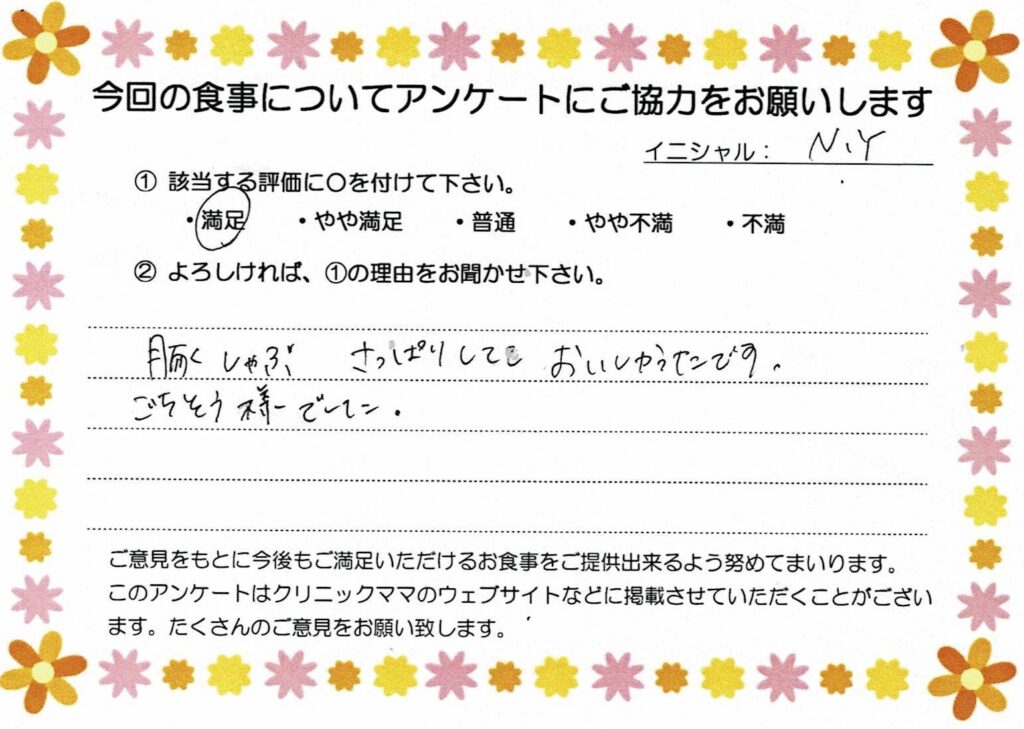 今回の食事についてアンケートにご協力をお願いします
イニシャル： N.Y
① 該当する評価に〇を付けて下さい。
・満足 ・やや満足 ・普通 ・やや不満 ・不満
② よろしければ、①の理由をお聞かせ下さい。
豚しゃぶ さっぱりしてて おいしかったです。
ごちそう様でした.
ご意見をもとに今後もご満足いただけるお食事をご提供出来るよう努めてまいります。
このアンケートはクリニックママのウェブサイトなどに掲載させていただくことがござい
ます。たくさんのご意見をお願い致します。